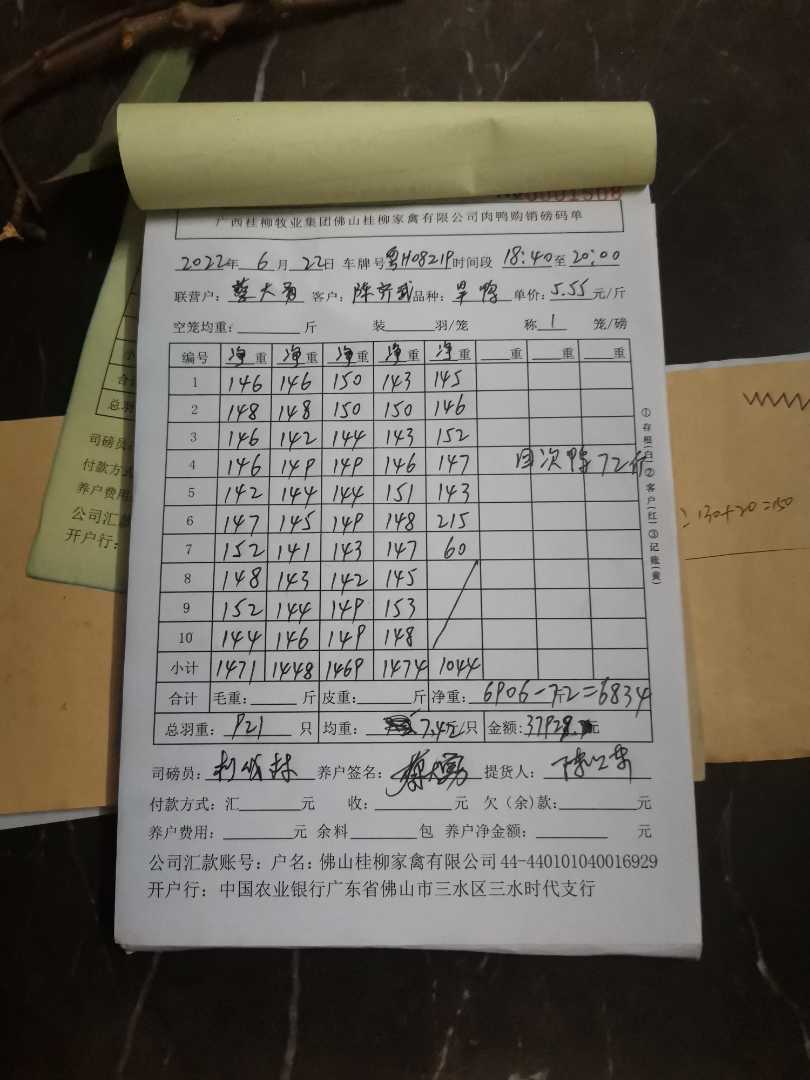 广西桂柳牧业集团佛山桂柳家禽有限公司肉鸭购销磅码单
2022年 6月 22日 车牌号粤H08219时间段 18:40至20:00
联营户: 客户: 品种: 旱鸭 单价: 5.55元/斤
空笼均重: 斤 装 羽/笼 称 1 笼/磅
编号 净重 净重 净重 净重 净重 重 重 重
1 146 146 150 143 145
2 148 148 150 150 146
3 146 142 144 143 152
4 146 149 149 146 147 次鸭72斤
5 142 144 144 151 143
6 147 145 149 148 215
7 152 141 143 147 60
8 148 143 142 145
9 152 144 149 153
10 144 146 149 148
小计 1471 1448 1469 1474 1044
合计 毛重: 斤 皮重: 斤 净重: 6906-72=6834
总羽重: 921 只 均重: 7.42/只 金额: 37929. 元
司磅员: 养户签名: 提货人:
付款方式: 汇 元 收: 元 欠(余)款: 元
养户费用: 元 余料 包 养户净金额: 元
公司汇款账号: 户名: 佛山桂柳家禽有限公司 44-440101040016929
开户行: 中国农业银行广东省佛山市三水区三水时代支行
①存根(白)②客户(红)③记账(黄)
130+20=150
司磅员:
付款方式
养户费用
公司汇
开户行: